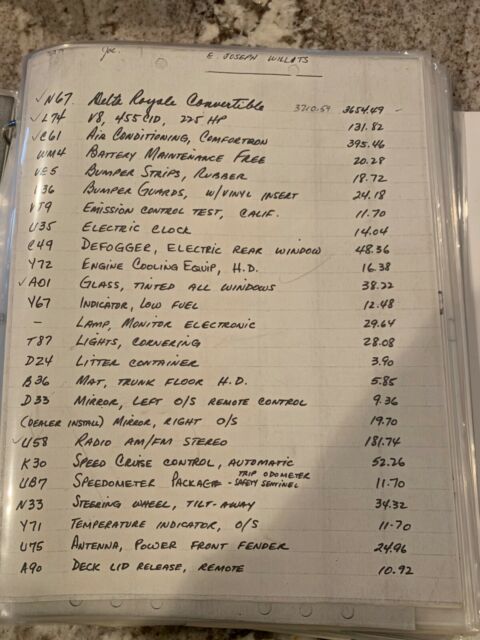 Joe.
E. JOSEPH WILLOTS
✓ N67 Delta Royale Convertible 3710.59 3654.49 -
✓ L74 V8, 455 CID, 225 HP 131.82
✓ C61 AIR CONDITIONING, COMFORTRON 395.46
WM4 BATTERY MAINTENANCE FREE 20.28
VE5 BUMPER STRIPS, RUBBER 18.72
V36 BUMPER GUARDS, W/VINYL INSERT 24.18
VJ9 EMISSION CONTROL TEST, CALIF. 11.70
U35 ELECTRIC CLOCK 14.04
C49 DEFOGGER, ELECTRIC REAR WINDOW 48.36
Y72 ENGINE COOLING EQUIP, H.D. 16.38
✓ A01 GLASS, TINTED ALL WINDOWS 38.22
Y67 INDICATOR, LOW FUEL 12.48
- LAMP, MONITOR ELECTRONIC 29.64
T87 LIGHTS, CORNERING 28.08
D24 LITTER CONTAINER 3.90
B36 MAT, TRUNK FLOOR H.D. 5.85
D33 MIRROR, LEFT O/S REMOTE CONTROL 9.36
(DEALER INSTALL) MIRROR, RIGHT O/S 19.70
✓ U58 RADIO AM/FM STEREO 181.74
K30 SPEED CRUISE CONTROL, AUTOMATIC 52.26
UB7 SPEEDOMETER PACKAGE - TRIP ODOMETER SAFETY SENTINEL 11.70
N33 STEERING WHEEL, TILT-AWAY 34.32
Y71 TEMPERATURE INDICATOR, O/S 11.70
U75 ANTENNA, POWER FRONT FENDER 24.96
A90 DECK LID RELEASE, REMOTE 10.92